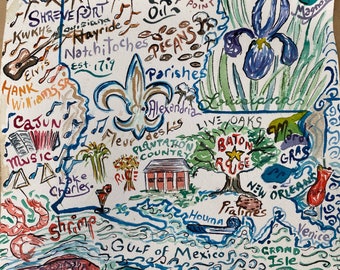 Shreveport
Oil
Point
KWKH
Louisiana
Hayride
Magnolia
Elvis
Natchitoches
Est. 1714
Pecans
Hank
Williams Sr
Parishes
Alexandria
Louisiana
Cajun
Music
Fleur de Lis
Live Oaks
Plantation
Country
Baton
Rouge
Mardi
Gras
Lake
Charles
Rice
New Orleans
Pralines
Shrimp
Houma
Venice
Gulf of Mexico
Grand
Isle